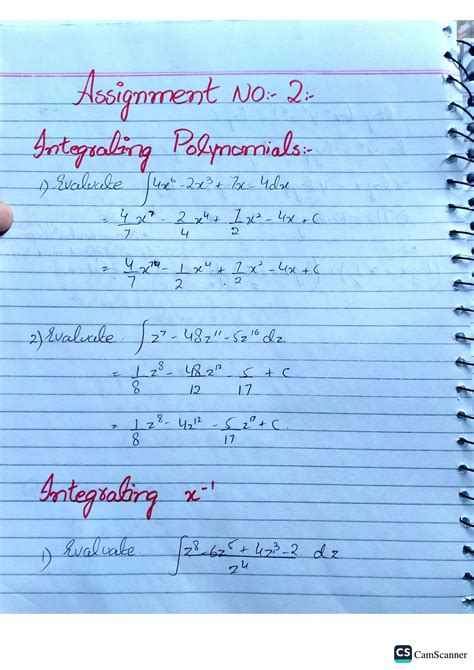 Assignment NO:- 2:-
Integrating Polynomials:-
1) Evaluate ∫4x⁶ - 2x³ + 7x - 4dx
= 4/7 x⁷ - 2/4 x⁴ + 7/2 x² - 4x + C
= 4/7 x⁷ - 1/2 x⁴ + 7/2 x² - 4x + C
2) Evaluate ∫z⁷ - 48z¹¹ - 5z¹⁶ dz
= 1/8 z⁸ - 48/12 z¹² - 5/17 + C
= 1/8 z⁸ - 4z¹² - 5/17 z¹⁷ + C.
Integrating x⁻¹
1) Evaluate ∫ z⁸ - 6z⁵ + 4z³ - 2 / z⁴ dz
CS CamScanner